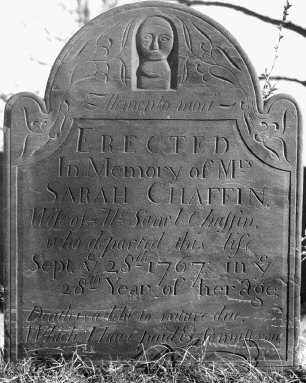 Memento mori
ERECTED
In Memory of Mrs
SARAH CHAFFIN,
Wife of Mr Saml Chaffin,
who departed this life
Sept. ye 28th 1767, in ye
28th Year of her age.
Death is a debt to nature due
Which I have paid &